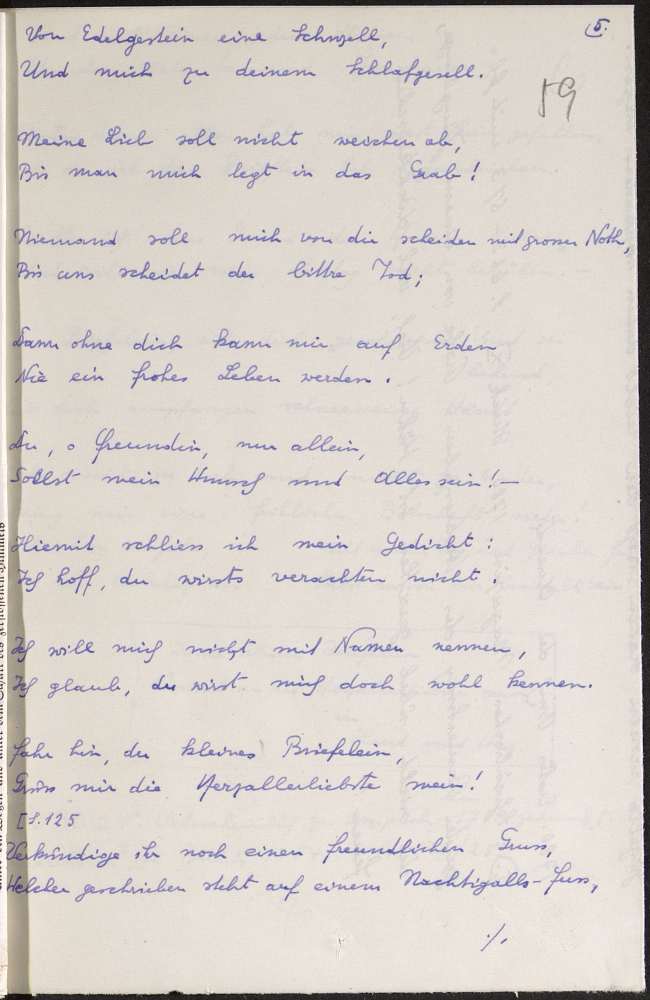 5.
Von Edelgestein eine Schwell,
Und mich zu deinem Schlafgesell.
59
Meine Lieb soll nicht weichen ab,
Bis man mich legt in das Grab!
Niemand soll mich von dir scheiden mit grosser Noth,
Bis uns scheidet der bittre Tod;
Dann ohne dich kann mir auf Erden
Nie ein frohes Leben werden.
Du, o Freundin, nur allein,
Sollst mein Wunsch und Alles sein! –
Hiemit schliess ich mein Gedicht:
Ich hoff, du wirsts verachten nicht.
Ich will mich nicht mit Namen nennen,
Ich glaub, du wirst mich doch wohl kennen.
Fahr hin, du kleines Briefelein,
Grüss mir die Herzallerliebste mein!
[S. 125
Verkündige ihr noch einen freundlichen Gruss,
Welcher geschrieben steht auf einem Nachtigalls-Fuss,
./.